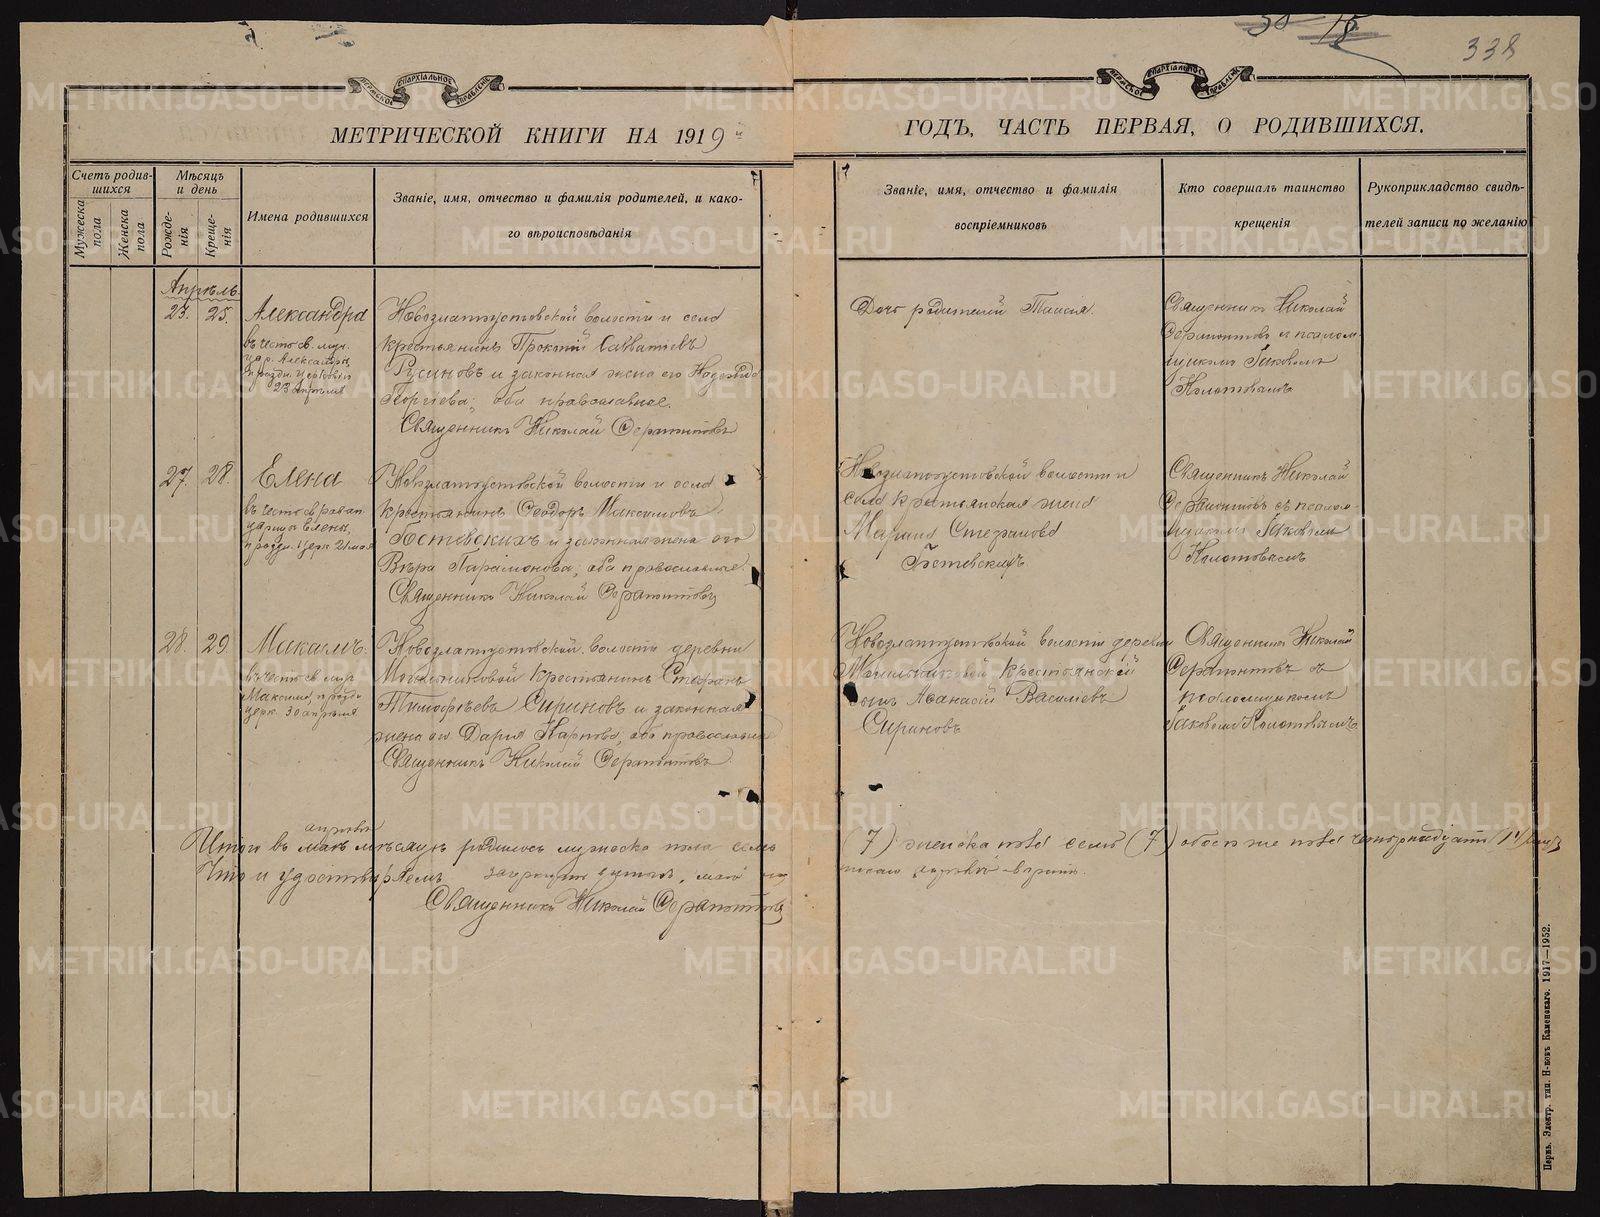 338
ПЕРМСКОЕ ЕПАРХІАЛЬНОЕ УПРАВЛЕНІЕ
ПЕРМСКОЕ ЕПАРХІАЛЬНОЕ УПРАВЛЕНІЕ
МЕТРИЧЕСКОЙ КНИГИ НА 1919 й
ГОДЪ, ЧАСТЬ ПЕРВАЯ, О РОДИВШИХСЯ.
Счетъ родив-
шихся
Мужеска
пола
Женска
пола
Мѣсяцъ
и день
Рожде-
нія
Креще-
нія
Имена родившихся
Званіе, имя, отчество и фамилія родителей, и како-
го вѣроисповѣданія
Званіе, имя, отчество и фамилія
воспріемниковъ
Кто совершалъ таинство
крещенія
Рукоприкладство свидѣ-
телей записи по желанію
Апрѣль
23. 25.
Александра
въ честь св. муч.
цар. Александры
праздн. церковію
23 апрѣля
Новозлатоустовской волости и села
крестьянинъ Прокопій Савватіевъ
Русиновъ и законная жена его Надежда
Георгіева, оба православные.
Священникъ Николай Серапионтовъ
Дочь родителей Таисія.
Священникъ Николай
Серапионтовъ и псалом-
щикомъ Іаковомъ
Колотовымъ
27. 28.
Елена
въ честь св. равноап.
царицы Елены
праздн. церк. 21 мая
Новозлатоустовской волости и села
крестьянинъ Ѳеодоръ Максимовъ
и законная жена его
Вѣра Парамонова, оба православные.
Священникъ Николай Серапионтовъ
Новозлатоустовской волости и
села крестьянская жена
Марина Стефанова
Священникъ Николай
Серапионтовъ съ псалом-
щикомъ Іаковомъ
Колотовымъ
28. 29.
Максимъ.
въ честь св. муч.
Максима, праздн.
церк. 30 апрѣля
Новозлатоустовской волости деревни
крестьянинъ Стефанъ
Тимофѣевъ Сириновъ и законная
жена его Дарія Карпова, оба православные
Священникъ Николай Серапионтовъ.
Новозлатоустовской волости деревни
крестьянскій
сынъ Аѳанасій Васильевъ
Сириновъ
Священникъ Николай
Серапионтовъ съ
псаломщикомъ
Іаковомъ Колотовымъ
апрѣлѣ
Итого въ маѣ мѣсяцѣ родилось мужеска пола семь
(7) женска пола семь (7) обоего же пола четырнадцать (14)
Что и удостовѣряемъ.
Священникъ Николай Серапионтовъ
Пермь. Электр. тип. Н-ковъ Каменскаго. 1917—1952.
METRIKI.GASO-URAL.RU